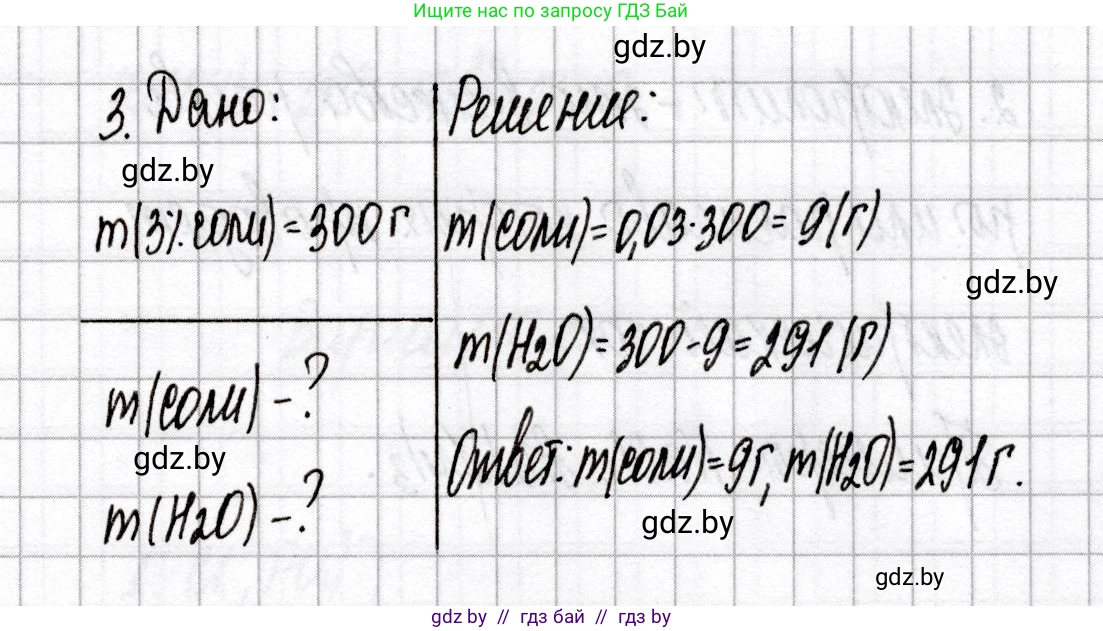 Ищите нас по запросу ГДЗ Бай
gdz.by
3. Дано:
gdz.by
m(3% соли) = 300 г
m(соли) - ?
gdz.by
m(H2O) - ?
Решение:
m(соли) = 0,03·300 = 9 (г)
gdz.by
m(H2O) = 300 - 9 = 291 (г)
Ответ: m(соли) = 9г, m(H2O) = 291 г.
gdz.by
gdz.by
gdz by // гдз бай // гдз by